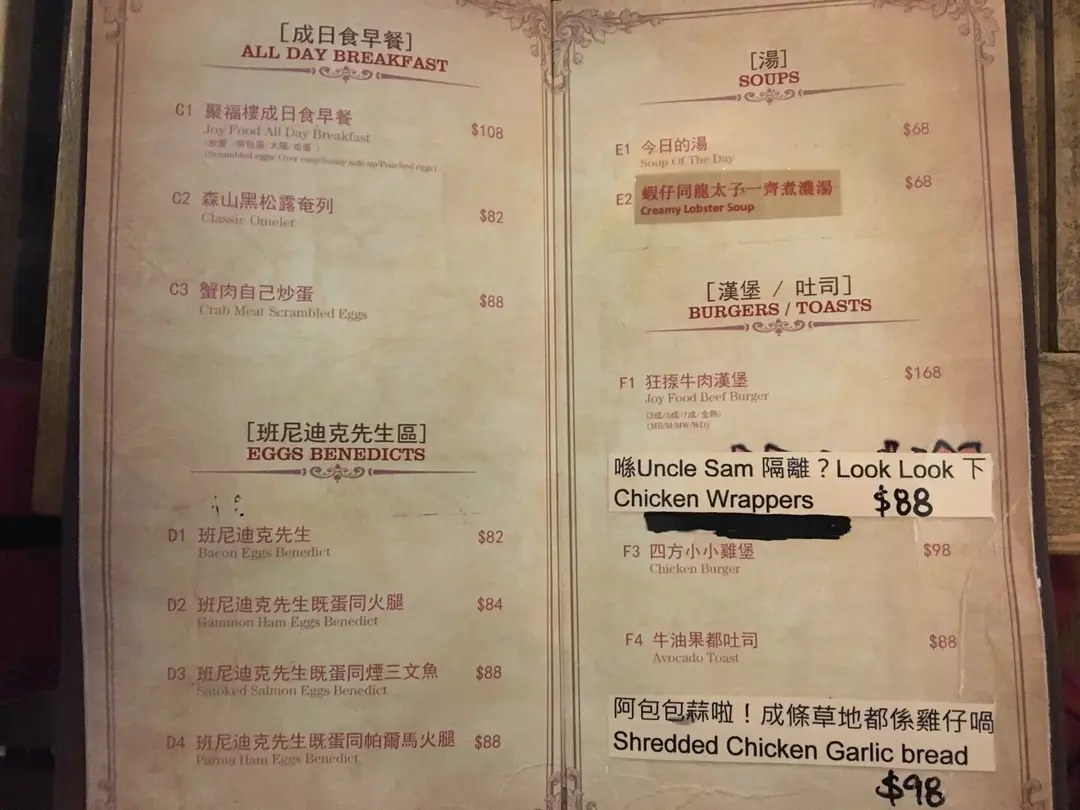 [成日食早餐]
ALL DAY BREAKFAST
C1 聚福樓成日食早餐 $108
Joy Food All Day Breakfast
(Scrambled eggs/ Over easy/Sunny side up/Poached eggs)
C2 森山黑松露奄列 $82
Classic Omelet
C3 蟹肉自己炒蛋 $88
Crab Meat Scrambled Eggs
[班尼迪克先生區]
EGGS BENEDICTS
D1 班尼迪克先生 $82
Bacon Eggs Benedict
D2 班尼迪克先生既蛋同火腿 $84
Gammon Ham Eggs Benedict
D3 班尼迪克先生既蛋同煙三文魚 $88
Smoked Salmon Eggs Benedict
D4 班尼迪克先生既蛋同帕爾馬火腿 $88
Parma Ham Eggs Benedict
[湯]
SOUPS
E1 今日的湯 $68
Soup Of The Day
E2 蝦仔同龍太子一齊煮濃湯 $68
Creamy Lobster Soup
[漢堡 / 吐司]
BURGERS / TOASTS
F1 狂揼牛肉漢堡 $168
Joy Food Beef Burger
(3成/5成/7成/全熟)
(MR/M/MW/WD)
喺Uncle Sam 隔離？Look Look 下
Chicken Wrappers $88
F3 四方小小雞堡 $98
Chicken Burger
F4 牛油果都吐司 $88
Avocado Toast
阿包包蒜啦！成條草地都係雞仔喎
Shredded Chicken Garlic bread
$98